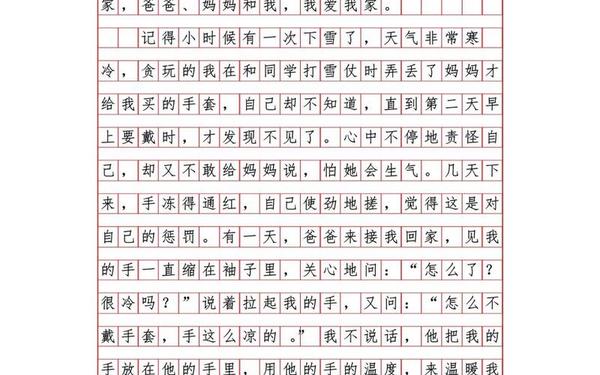 家，爸爸、妈妈和我，我爱我家。
记得小时候有一次下雪了，天气非常寒
冷，贪玩的我在和同学打雪仗时弄丢了妈妈才
给我买的手套，自己却不知道，直到第二天早
上要戴时，才发现不见了。心中不停地责怪自
己，却又不敢给妈妈说，怕她会生气。几天下
来，手冻得通红，自己使劲地搓，觉得这是对
自己的惩罚。有一天，爸爸来接我回家，见我
的手一直缩在袖子里，关心地问：“怎么了？
很冷吗？”说着拉起我的手，又问：“怎么不
戴手套，手这么凉的。”我不说话，他把我的
手放在他的手里，用他的手的温度，来温暖我